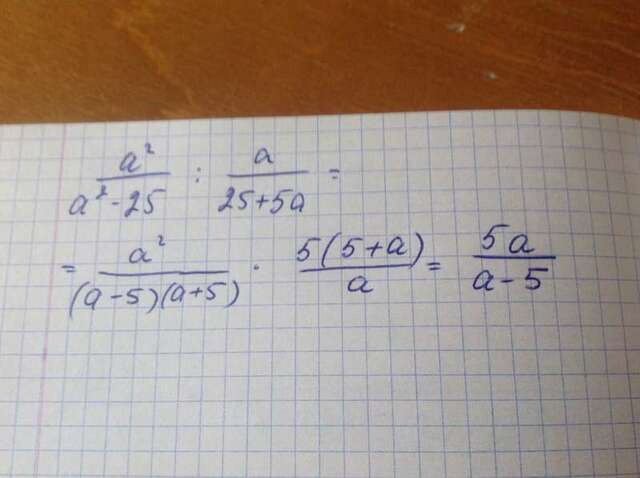 a²/(a²-25) : a/(25+5a) =
= a²/((a-5)(a+5)) · 5(5+a)/a = 5a/(a-5)